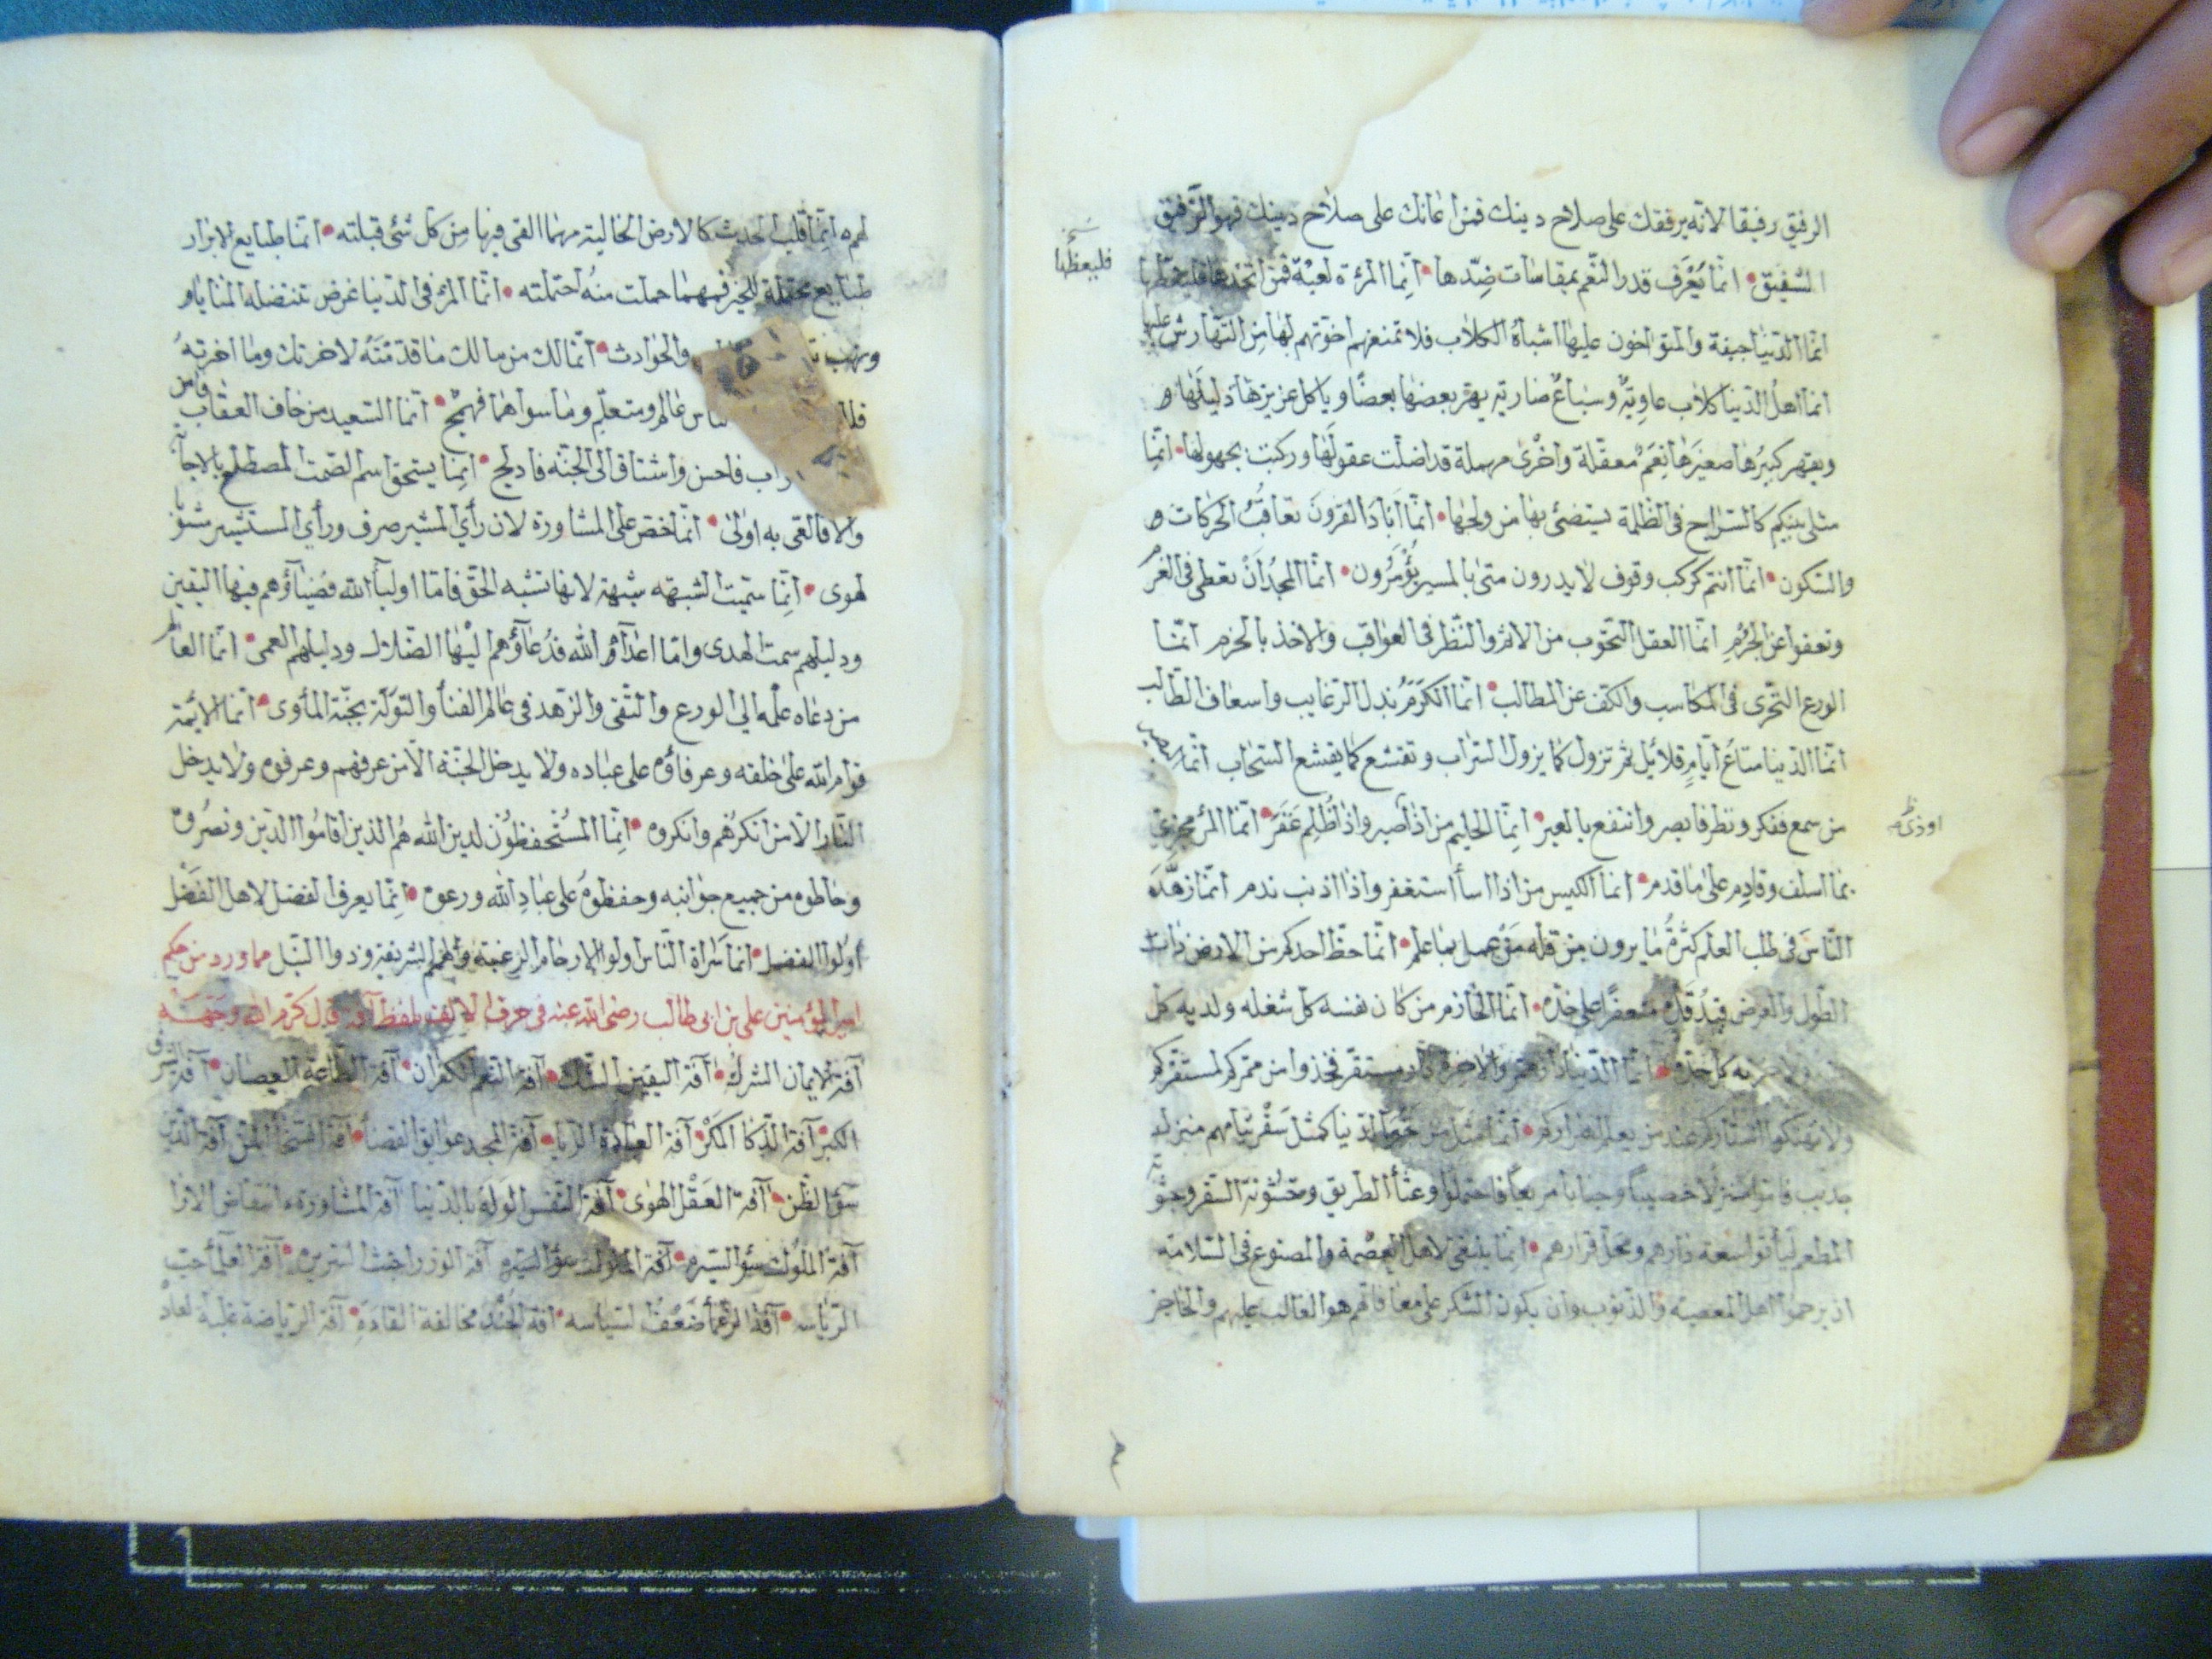 الرفيق رفيقا لانه يرفقك على صلاح دينك فمن اعانك على صلاح دينك فهو الرفيق
الشفيق انما يعرف قدر النعم بمقاسات ضدها انما المرءة لعبة فمن اتخذها
فليعظها
انما الدنيا جيفة والمتواخون عليها اشباه الكلاب فلا تمنعهم اخوتهم لها من التهارش عليها
انما اهل الدنيا كلاب عاوية وسباع ضارية يهر بعضها بعضا وياكل عزيزها ذليلها و
ويقهر كبيرها صغيرها نعم معقلة واخرى مهملة قد اضلت عقولها وركبت مجهولها انما
مثلى بينكم كالسراج فى الظلمة يستضئ بها من ولجها انما اباد القرون تعاقب الحركات و
والسكون انما انتم كركب وقوف لا يدرون متى بالمسير يؤمرون انما المجد ان تعطى فى الغرم
وتعفو عن الجرم انما العقل التحوب من الاثم والنظر فى العواقب والاخذ بالحزم انما
الورع التحرى فى المكاسب والكف عن المطالب انما الكرم بذل الرغايب واسعاف الطالب
انما الدنيا متاع ايام قلائل ثم تزول كما يزول السراب وتقشع كما يقشع السحاب انما البصير
من سمع ففكر ونظر فابصر وانتفع بالعبر انما الحليم من اذا صبر واذا ظلم غفر انما المرء مجزى
اوذى
بما اسلف وقادم على ما قدم انما الكيس من اذا اسأ استغفر واذا اذنب ندم انما زهد
الناس فى طلب العلم كثرة ما يرون من قلة من عمل بما علم انما حظ احدكم من الارض ذات
الطول والعرض قيد قده متعفرا على خده انما الحازم من كان نفسه كل شغله ولديه كل
كل جده انما الدنيا دار ممر والاخرة دار مستقر فخذوا من ممركم لمستقركم
ولا تهتكوا استاركم عند من يعلم اسراركم انما مثل من خبر الدنيا كمثل سفر نبا بهم منزل
جديب فاموا منزلا خصيبا وجنابا مريعا فاحتملوا وعثأ الطريق وخشونة السفر وجشوبة
المطعم ليأتوا سعة دارهم ومحل قرارهم انما ينبغى لاهل العصمة والمصنوع فى السلامة
ان يرحموا اهل المعصية والذنوب وان يكون الشكر على معافاتهم هو الغالب عليهم والحاجز
لهم انما قلب الحدث كالارض الخالية مهما القى فيها من كل شئ قبلته انما طبايع الابرار
طبايع محتملة للخير فمهما حملت منه احتملته انما المرء فى الدنيا غرض تنتضله المنايا و
ونهب والحوادث انما لك من مالك ما قدمته لاخرتك وما اخرته
عالم ومتعلم وما سواهما فهمج انما السعيد من خاف العقاب فامن
فاحسن واشتاق الى الجنة فادلج انما يستحق اسم الصمت المضطلع بالاجابة
والا فالعى به اولى انما حض على المشاورة لان رأى المشير صرف ورأى المستشير مشوب
لهوى انما سميت الشبهة شبهة لانها تشبه الحق فاما اوليأ الله فضياؤهم فيها اليقين
ودليلهم سمت الهدى واما اعدآء الله فدعاؤهم اليها الضلال ودليلهم العمى انما العالم
من دعاه علمه الى الورع والتقى والزهد فى عالم الفنأ والتوله بجنة المأوى انما الائمة
قوام الله على خلقه وعرفاؤه على عباده ولا يدخل الجنة الا من عرفهم وعرفوه ولا يدخل
النار الا من انكرهم وانكروه انما المستحفظون لدين الله هم الذين اقاموا الدين ونصروه
وحاطوه من جميع جوانبه وحفظوه على عباد الله ورعوه انما يعرف الفضل لاهل الفضل
اولوا الفضل انما سراة الناس اولوا الارحام الرغيبة والهمم الشريفة وذووا النبل مما ورد من حكم
امير المؤمنين على بن ابى طالب رضى الله عنه فى حرف الالف بلفظ آفة قال كرم الله وجهه
آفة الايمان الشرك آفة اليقين الشك آفة النعم الكفران آفة الطاعة العصيان آفة الشرف
الكبر آفة الذكا المكر آفة العبادة الريا آفة المجد عوايق القضأ آفة السخأ المن آفة الدين
سؤ الظن آفة العقل الهوى آفة النفس الوله بالدنيا آفة المشاورة انتقاض الارا
آفة الملوك سؤ السيرة آفة الوزرا خبث السريرة آفة العلمأ حب
الرياسة آفة الزعمأ ضعف السياسة آفة الجند مخالفة القادة آفة الرياضة غلبة العادة